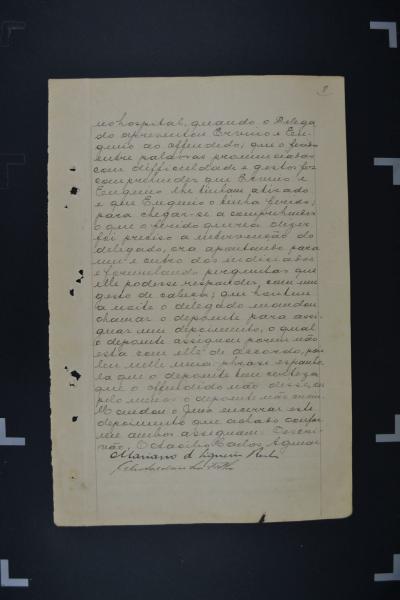 no hospital, quando o Delega
do apresentou Erminio e Eu
genio ao offendido; que o ferido
entre palavras pronunciadas
com difficuldade e gestos fez
comprehender que Erminio e
Eugenio lhe tinham atirado
e que Eugenio o tinha ferido;
para chegar-se a comprehender
o que o ferido queria dizer
foi preciso a intervenção do
delegado, ora apontando para
um e outro dos indiciados
e formulando perguntas que
elle podesse responder com um
gesto de cabeça; que hontem
a noite o delegado mandou
chamar o depoente para assi
gnar seu depoimento, o qual
o depoente assignou porem não
está com elle de accordo, por
ter nelle uma phrase
que o depoente tem certeza
que o offendido não disse, ou
pelo menos o depoente não ouviu.
Mandou o Juiz encerrar este
depoimento que achado confor
me ambos assignam. Escri
vão, Octacilio Carlos Aguiar
Mariano de Siqueira